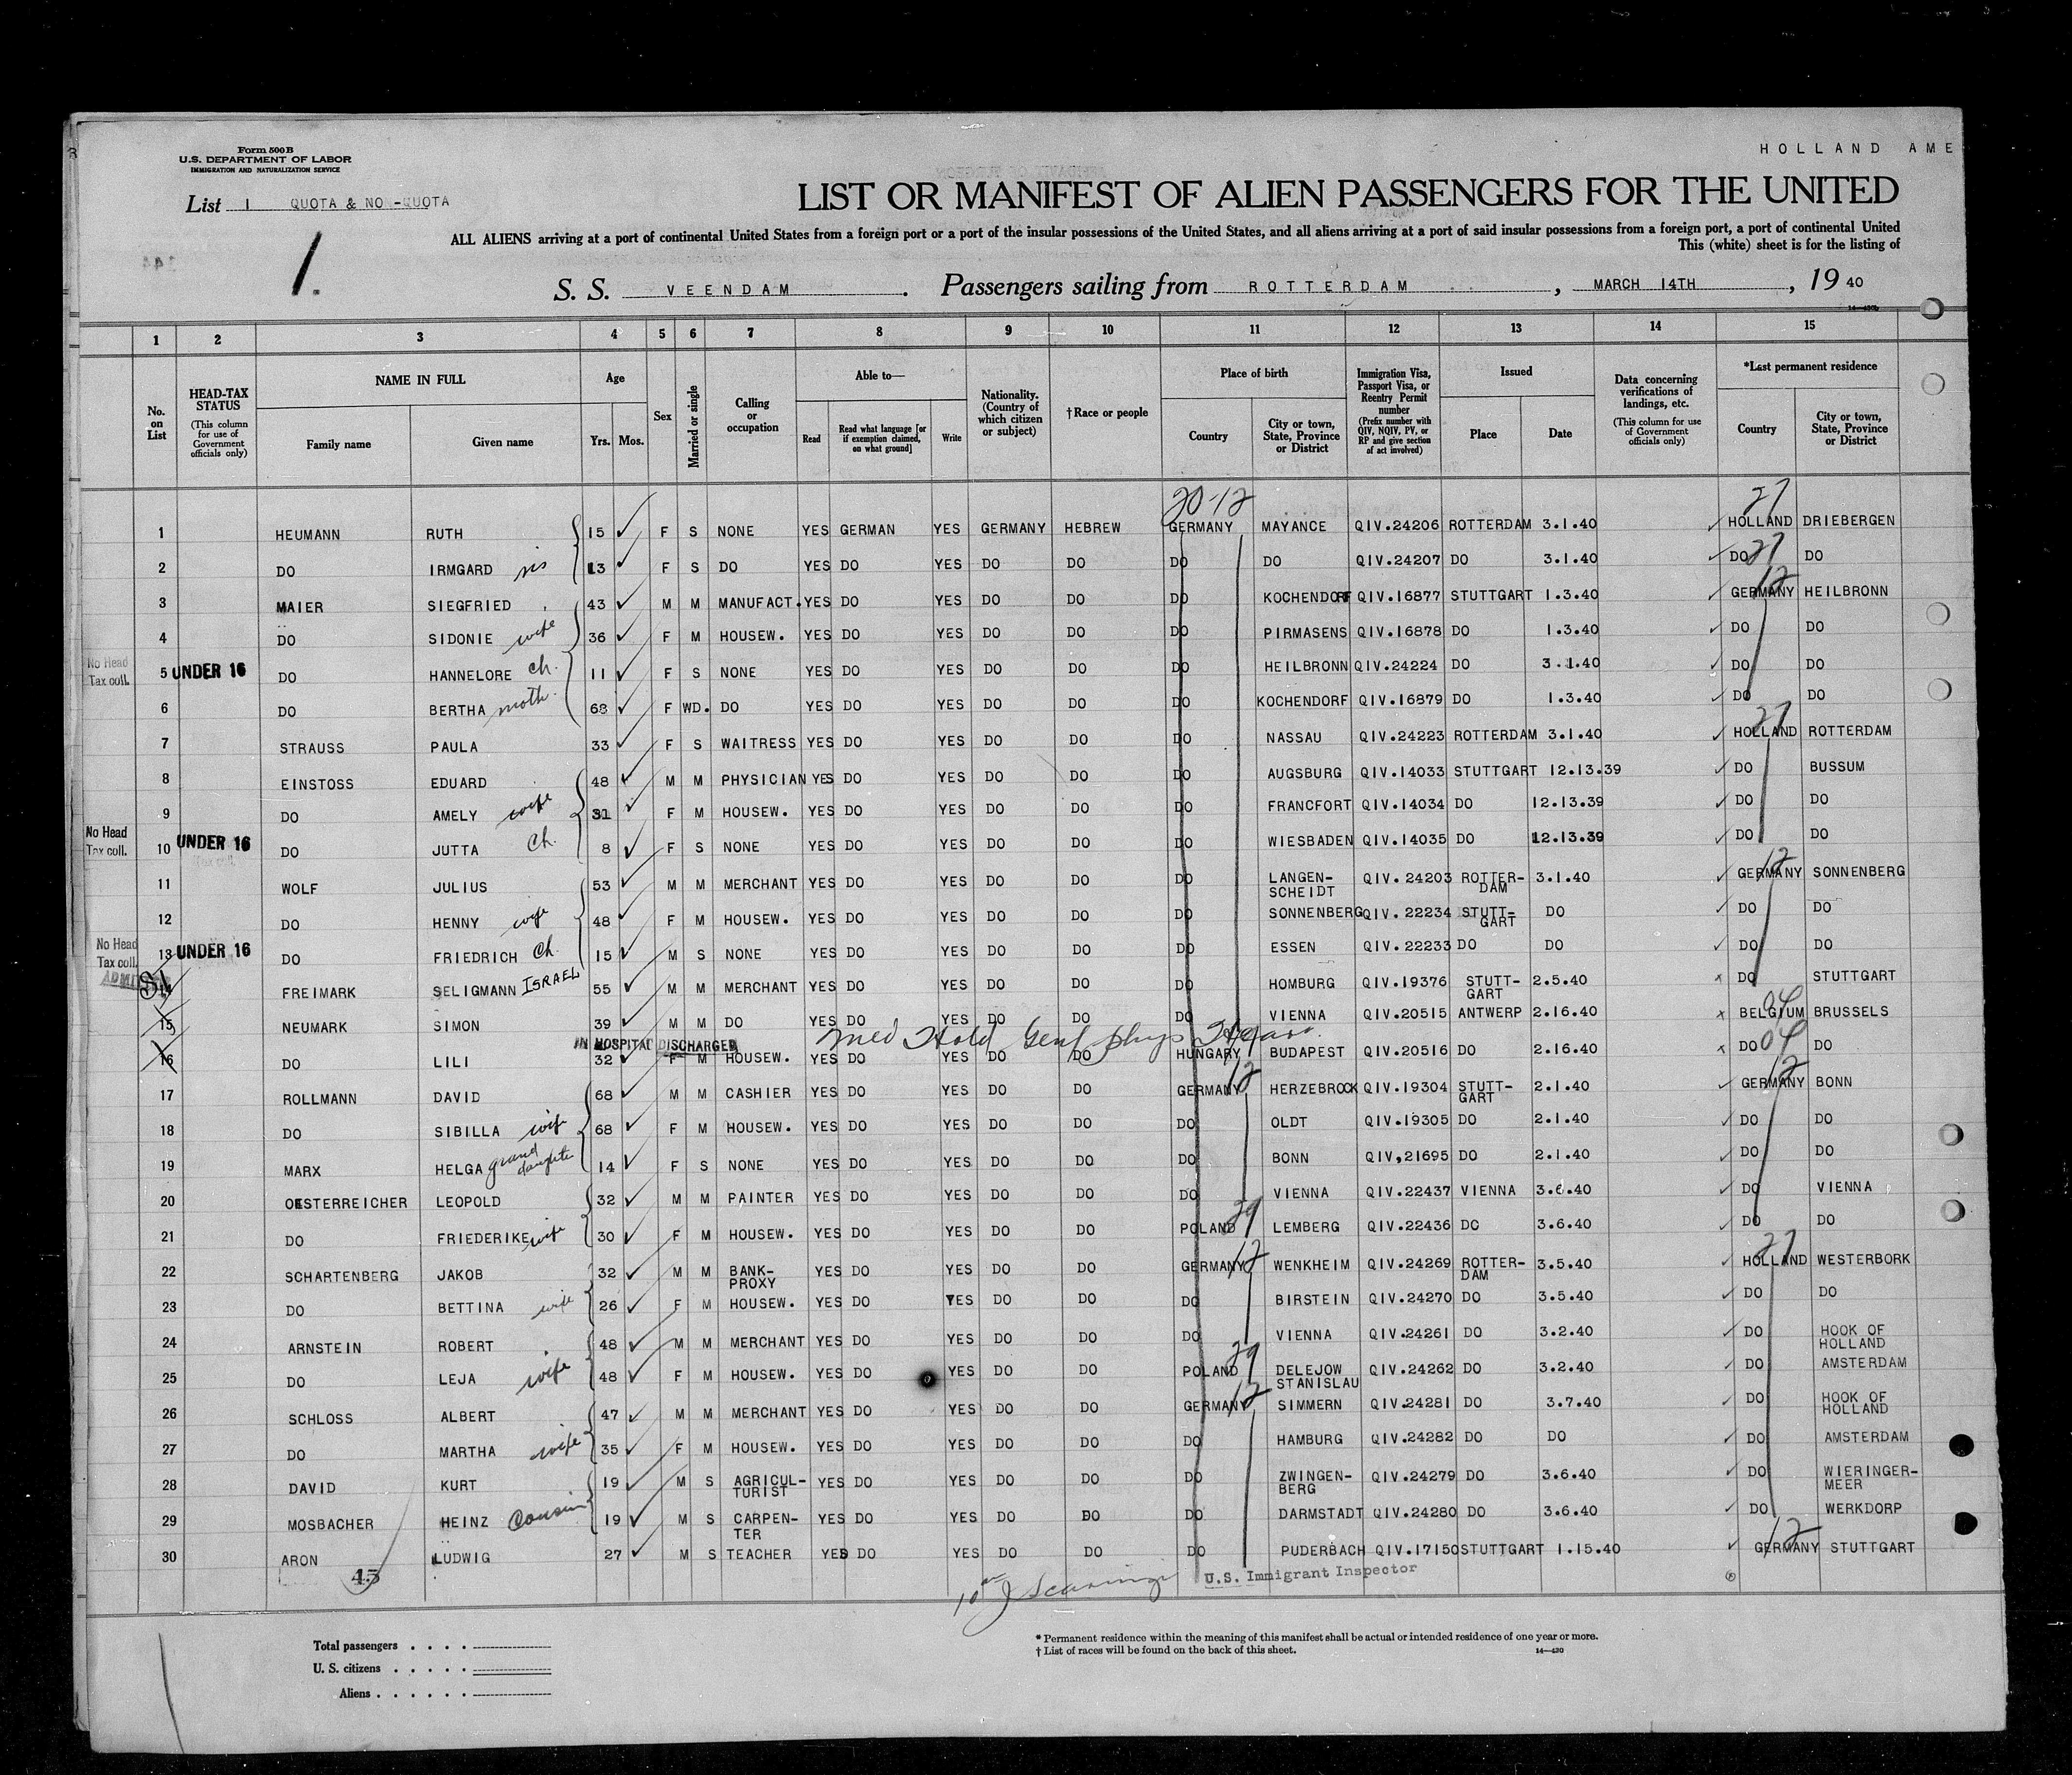 HOLLAND AME
Form 500B
U.S. DEPARTMENT OF LABOR
IMMIGRATION AND NATURALIZATION SERVICE
List 1 QUOTA & NO -QUOTA
LIST OR MANIFEST OF ALIEN PASSENGERS FOR THE UNITED
ALL ALIENS arriving at a port of continental United States from a foreign port or a port of the insular possessions of the United States, and all aliens arriving at a port of said insular possessions from a foreign port, a port of continental United
This (white) sheet is for the listing of
1.
S. S. VEENDAM . Passengers sailing from ROTTERDAM , MARCH 14TH , 19 40
1 2 3 4 5 6 7 8 9 10 11 12 13 14 15
No. on List
HEAD-TAX STATUS (This column for use of Government officials only)
NAME IN FULL Family name Given name
Age Yrs. Mos.
Sex
Married or single
Calling or occupation
Able to— Read Read what language [or if exemption claimed, on what ground] Write
Nationality. (Country of which citizen or subject)
† Race or people
Place of birth Country City or town, State, Province or District
Immigration Visa, Passport Visa, or Reentry Permit number (Prefix number with QIV, NQIV, PV, or RP and give section of act involved)
Issued Place Date
Data concerning verifications of landings, etc. (This column for use of Government officials only)
*Last permanent residence Country City or town, State, Province or District
20-12 27
1 HEUMANN RUTH 15 F S NONE YES GERMAN YES GERMANY HEBREW GERMANY MAYANCE QIV.24206 ROTTERDAM 3.1.40 HOLLAND DRIEBERGEN
2 DO IRMGARD sis 13 F S DO YES DO YES DO DO DO DO QIV.24207 DO 3.1.40 DO 27 DO
3 MAIER SIEGFRIED 43 M M MANUFACT. YES DO YES DO DO DO KOCHENDORF QIV.16877 STUTTGART 1.3.40 GERMANY 12 HEILBRONN
4 DO SIDONIE wife 36 F M HOUSEW. YES DO YES DO DO DO PIRMASENS QIV.16878 DO 1.3.40 DO DO
No Head Tax coll. 5 UNDER 16 DO HANNELORE ch. 11 F S NONE YES DO YES DO DO DO HEILBRONN QIV.24224 DO 3.1.40 DO DO
6 DO BERTHA moth. 68 F WD. DO YES DO YES DO DO DO KOCHENDORF QIV.16879 DO 1.3.40 DO DO
7 STRAUSS PAULA 33 F S WAITRESS YES DO YES DO DO DO NASSAU QIV.24223 ROTTERDAM 3.1.40 HOLLAND 27 ROTTERDAM
8 EINSTOSS EDUARD 48 M M PHYSICIAN YES DO YES DO DO DO AUGSBURG QIV.14033 STUTTGART 12.13.39 DO BUSSUM
9 DO AMELY wife 31 F M HOUSEW. YES DO YES DO DO DO FRANCFORT QIV.14034 DO 12.13.39 DO DO
No Head Tax coll. 10 UNDER 16 DO JUTTA Ch. 8 F S NONE YES DO YES DO DO DO WIESBADEN QIV.14035 DO 12.13.39 DO DO
11 WOLF JULIUS 53 M M MERCHANT YES DO YES DO DO DO LANGEN-SCHEIDT QIV.24203 ROTTER-DAM 3.1.40 GERMANY 12 SONNENBERG
12 DO HENNY wife 48 F M HOUSEW. YES DO YES DO DO DO SONNENBERG QIV.22234 STUTT-GART DO DO DO
No Head Tax coll. 13 UNDER 16 DO FRIEDRICH Ch. 15 M S NONE YES DO YES DO DO DO ESSEN QIV.22233 DO DO DO DO
14 FREIMARK SELIGMANN ISRAEL 55 M M MERCHANT YES DO YES DO DO DO HOMBURG QIV.19376 STUTT-GART 2.5.40 DO STUTTGART
15 NEUMARK SIMON 39 M M DO YES DO YES DO DO DO VIENNA QIV.20515 ANTWERP 2.16.40 BELGIUM 04 BRUSSELS
IN HOSPITAL DISCHARGED Med Hold Genl phys
16 DO LILI 32 F M HOUSEW. YES DO YES DO DO HUNGARY BUDAPEST QIV.20516 DO 2.16.40 DO 04 DO
17 ROLLMANN DAVID 68 M M CASHIER YES DO YES DO DO GERMANY 12 HERZEBROCK QIV.19304 STUTT-GART 2.1.40 GERMANY 12 BONN
18 DO SIBILLA wife 68 F M HOUSEW. YES DO YES DO DO DO OLDT QIV.19305 DO 2.1.40 DO DO
19 MARX HELGA grand daughter 14 F S NONE YES DO YES DO DO DO BONN QIV,21695 DO 2.1.40 DO DO
20 OESTERREICHER LEOPOLD 32 M M PAINTER YES DO YES DO DO DO VIENNA QIV.22437 VIENNA 3.6.40 DO VIENNA
21 DO FRIEDERIKE wife 30 F M HOUSEW. YES DO YES DO DO POLAND 29 LEMBERG QIV.22436 DO 3.6.40 DO DO
22 SCHARTENBERG JAKOB 32 M M BANK-PROXY YES DO YES DO DO GERMANY 12 WENKHEIM QIV.24269 ROTTER-DAM 3.5.40 HOLLAND 27 WESTERBORK
23 DO BETTINA wife 26 F M HOUSEW. YES DO YES DO DO DO BIRSTEIN QIV.24270 DO 3.5.40 DO DO
24 ARNSTEIN ROBERT 48 M M MERCHANT YES DO YES DO DO DO VIENNA QIV.24261 DO 3.2.40 DO HOOK OF HOLLAND
25 DO LEJA wife 48 F M HOUSEW. YES DO YES DO DO POLAND 29 DELEJOW STANISLAU QIV.24262 DO 3.2.40 DO AMSTERDAM
26 SCHLOSS ALBERT 47 M M MERCHANT YES DO YES DO DO GERMANY 12 SIMMERN QIV.24281 DO 3.7.40 DO HOOK OF HOLLAND
27 DO MARTHA wife 35 F M HOUSEW. YES DO YES DO DO DO HAMBURG QIV.24282 DO DO DO AMSTERDAM
28 DAVID KURT 19 M S AGRICUL-TURIST YES DO YES DO DO DO ZWINGEN-BERG QIV.24279 DO 3.6.40 DO WIERINGER-MEER
29 MOSBACHER HEINZ Cousin 19 M S CARPEN-TER YES DO YES DO DO DO DARMSTADT QIV.24280 DO 3.6.40 DO WERKDORP
30 ARON LUDWIG 27 M S TEACHER YES DO YES DO DO DO PUDERBACH QIV.17150 STUTTGART 1.15.40 GERMANY 12 STUTTGART
45
U.S. Immigrant Inspector
Total passengers . . . .
U. S. citizens . . . . .
Aliens . . . . . .
* Permanent residence within the meaning of this manifest shall be actual or intended residence of one year or more.
† List of races will be found on the back of this sheet.
14—430